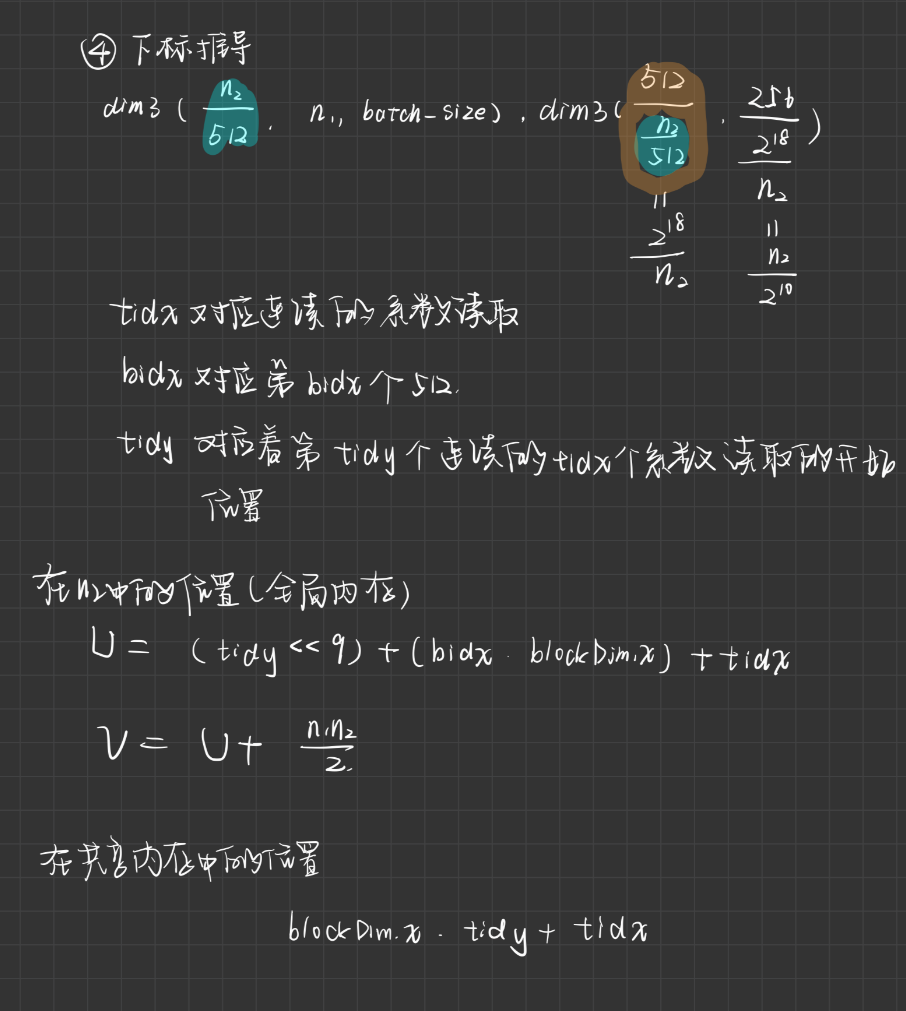 ④ 下标推导
dim3 ( n₂/512 , n₁, batch-size), dim3( 512/(n₂/512) , 256/(2¹⁸/n₂) )
= 2¹⁸/n₂
= n₂/2¹⁰
tidx 对应连续的系数读取
bidx 对应第 bidx 个 512.
tidy 对应着第 tidy 个连续的 tidx 个系数读取的开始
位置
在 n₂ 中的位置 (全局内存)
U = (tidy << 9) + (bidx · blockDim.x) + tidx
V = U + n₁n₂/2
在共享内存中的位置
blockDim.x · tidy + tidx